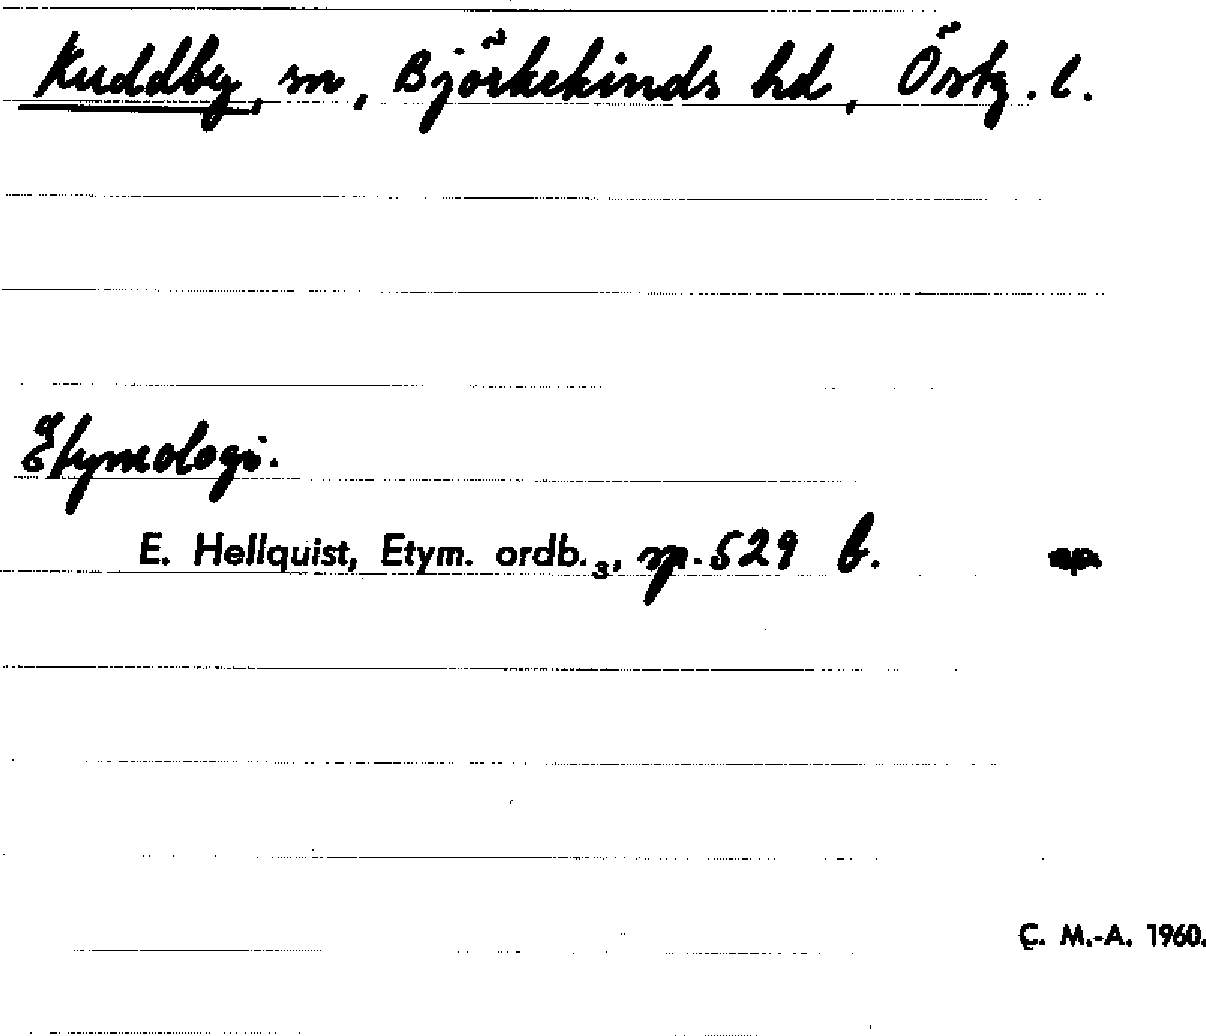 Kuddby, sn, Björkekinds hd, Östg. l.
Etymologi.
E. Hellquist, Etym. ordb.₃, sp. 529 b.
C. M.-A. 1960.